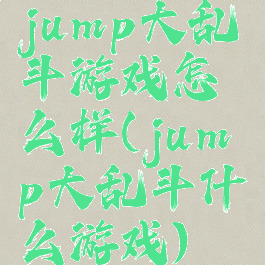 jump大乱
斗游戏怎
么样(jum
p大乱斗什
么游戏)